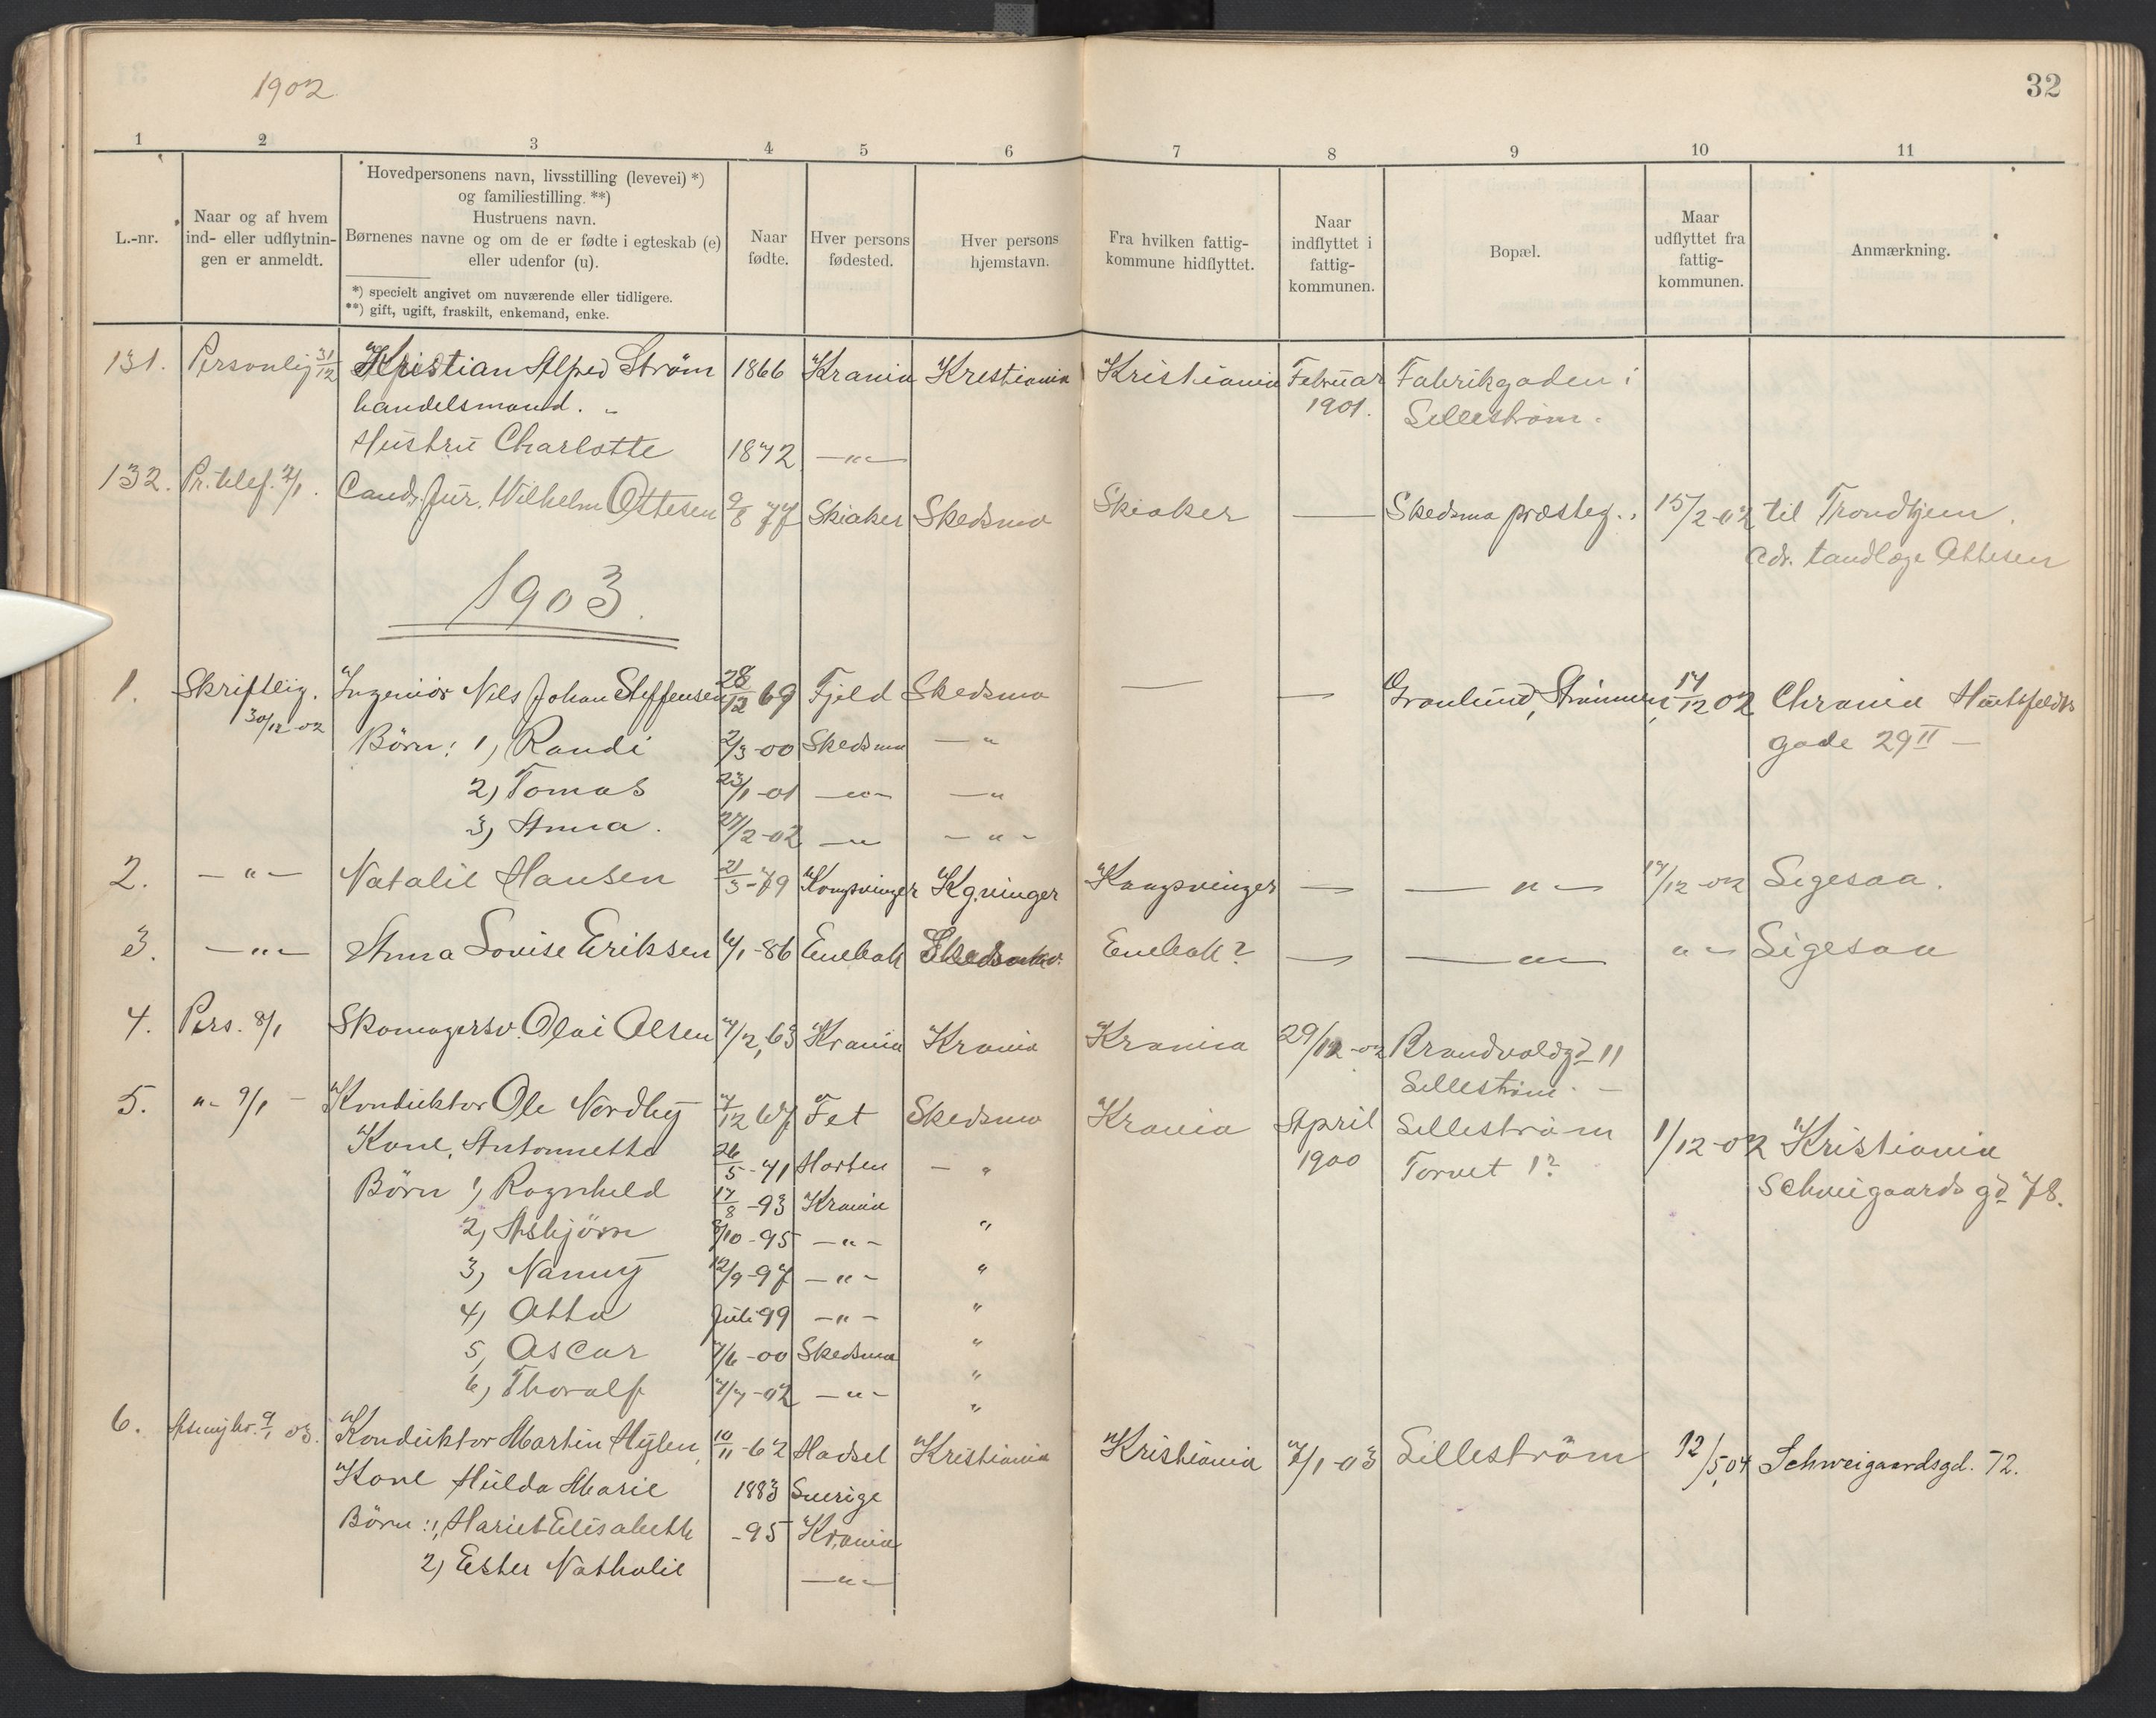 1902
32
1 2 3 4 5 6 7 8 9 10 11
L.-nr.
Naar og af hvem
ind- eller udflytnin-
gen er anmeldt.
Hovedpersonens navn, livsstilling (levevei) *)
og familiestilling. **)
Hustruens navn.
Børnenes navne og om de er fødte i egteskab (e)
eller udenfor (u).
*) specielt angivet om nuværende eller tidligere.
**) gift, ugift, fraskilt, enkemand, enke.
Naar
fødte.
Hver persons
fødested.
Hver persons
hjemstavn.
Fra hvilken fattig-
kommune hidflyttet.
Naar
indflyttet i
fattig-
kommunen.
Bopæl.
Maar
udflyttet fra
fattig-
kommunen.
Anmærkning.
131. Personlig 31/12 Kristian Alfred Ström 1866 Krania Kristiania Kristiania Februar Fabrikgaden i
handelsmand. 1901. Lilleström.
Hustru Charlotte 1872 —"—
132. Pr. telef. 2/1. Cand. Jur. Wilhelm Ottesen 2/8 77 Skiaker Skedsmo Skiaker — Skedsmo præsteg. 15/2-02 til Trondhjem.
adr. tandlæge Ottesen
1903.
1. Skriftlig. Ingeniör Nils Johan Steffensen 28/12 69 Fjeld Skedsmo — — Granlund, Strömmen, 17/12 02 Chrania Huitfeldts
30/12-02 Börn: 1, Randi 2/3-00 Skedsmo —" gade 29 II —
2, Tomas 23/1-01 —"— —"
3, Anna. 27/2-02 —"— —"—
2. —"— Natalie Hansen 21/3-79 Kongsvinger Kg.vinger Kongsvinger — —"— 17/12-02 Sigesaa.
3. —"— Anna Lovise Eriksen 6/1-86 Enebak Skedsmo. Enebak? — —"— "— Sigesaa
4. Pers. 8/1 Skomagersv. Olai Olsen 4/2,63 Krania Krania Krania 29/12-02 Brandvoldgd 11
Lilleström. —
5. "— 9/1 — Konduktor Ole Nordby 7/12 67 Fet Skedsmo Krania April Lilleström 1/12-02 Kristiania
Kone, Antonnette 26/5-71 Horten —" 1900 Torvet 1? Schweigaards gd 78.
Börn 1, Ragnhild 17/8-93 Krania
2, Asbjörn 8/10-95 —"— "
3, Nanny 12/9-97 —"— "
4, Otto Juli 99 —"— "
5, Oscar 7/6-00 Skedsmo "
6, Thoralf 7/7-02 —"— "
"
6. 9/1 03. Konduktor Martin Hylen, 10/11-62 Hadsel Kristiania Kristiania 7/1-03 Lilleström 12/5,04 Schweigaardsgd. 72.
Kone Hulda Marie 1883 Sverige
Börn: 1, Hariet Elisabeth -95 Krania
2) Ester Nathalie —"—